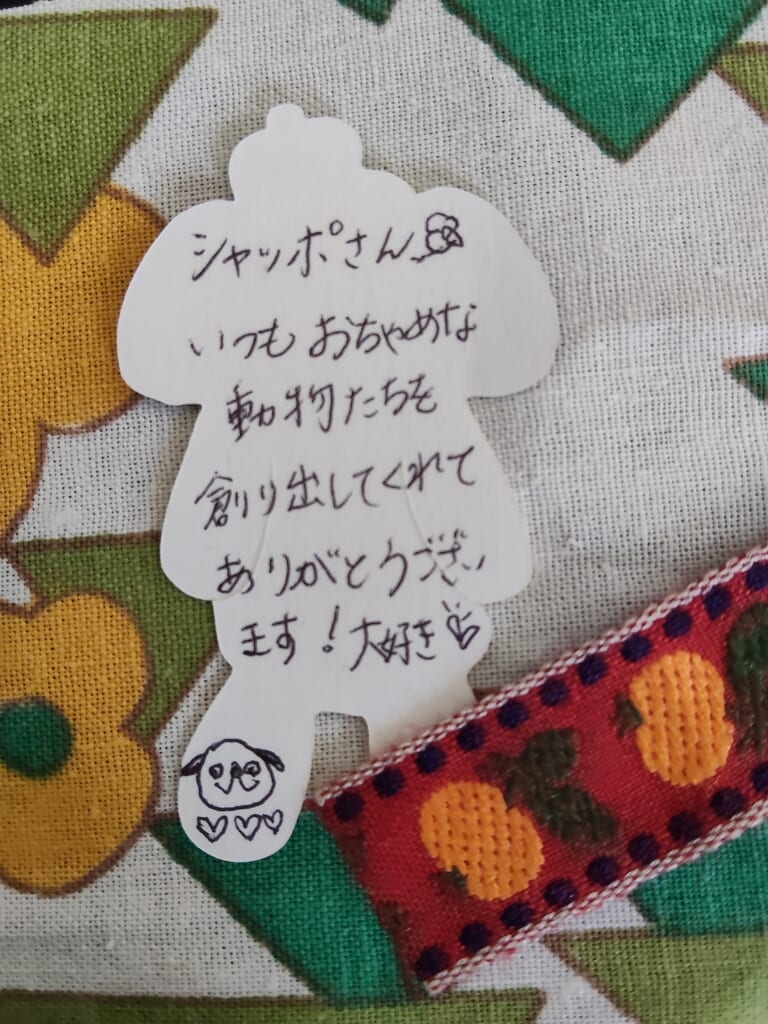 シャッポさん
いつもおちゃめな
動物たちを
創り出してくれて
ありがとうござい
ます！大好き